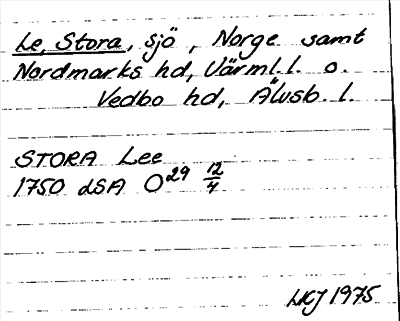 Le, Stora, sjö, Norge samt
Nordmarks hd, Värml. l. o.
Vedbo hd, Älvsb. l.
STORA Lee
1750 LSA O²⁹ 12/7
LKJ 1975